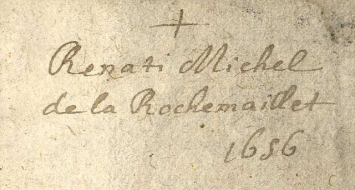 Renati Michel
de la Rochemaillet
1656